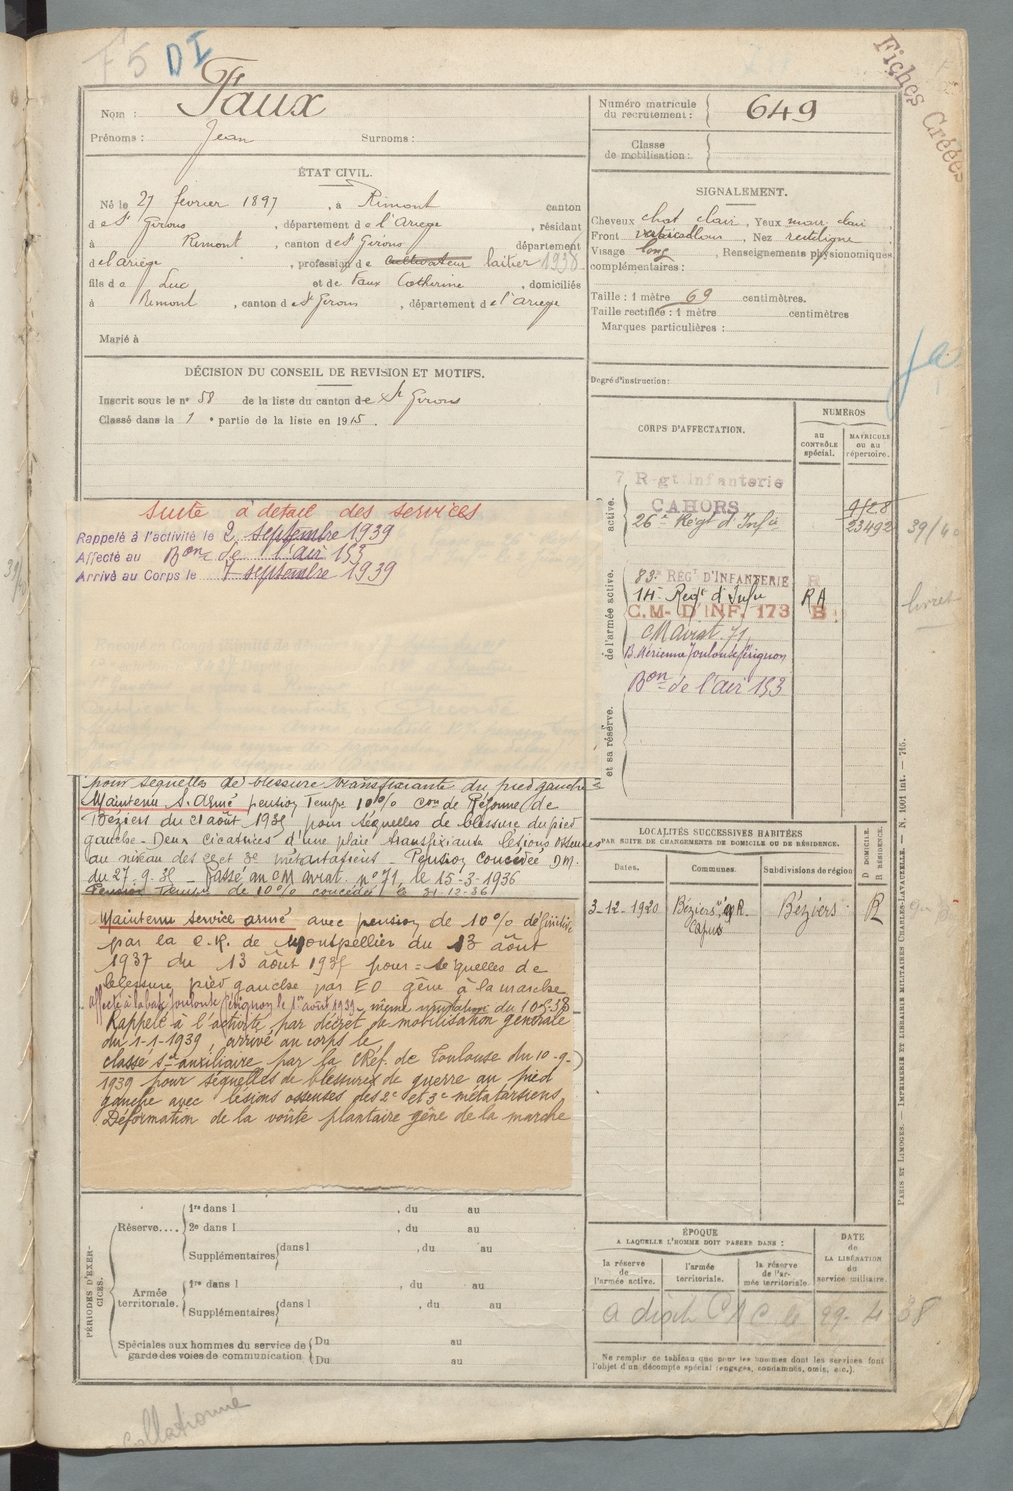 F5 DI
Fiches Créées
Nom : Faux
Prénoms : Jean Surnoms :
Numéro matricule du recrutement : 649
Classe de mobilisation :
ÉTAT CIVIL.
Né le 27 février 1897, à Rimont canton
de St Girons, département de l'Ariège, résidant
à Rimont, canton de St Girons département
de l'ariège, profession de cultivateur laitier 1938
fils de Luc et de Faux Catherine, domiciliés
à Rimont, canton de St Girons, département de l'ariège
Marié à
SIGNALEMENT.
Cheveux chat clair, Yeux mar. clair
Front, Nez rectiligne
Visage long, Renseignements physionomiques
complémentaires :
Taille : 1 mètre 69 centimètres.
Taille rectifiée : 1 mètre centimètres
Marques particulières :
Degré d'instruction :
DÉCISION DU CONSEIL DE REVISION ET MOTIFS.
Inscrit sous le n° 58 de la liste du canton de St Girons
Classé dans la 1e partie de la liste en 1915.
suite à detail des services
Rappelé à l'activité le 2 septembre 1939
Affecté au Bon de l'air 153
Arrivé au Corps le 7 septembre 1939
pour séquelles de blessure transfixiante du pied gauche
Maintenu S. Armé pension Temp. 10% Con de Réforme de
Béziers du 21 août 1935 pour séquelles de blessure du pied
gauche - Deux cicatrices d'une plaie transfixiante lésions osseuses
au niveau des 2e et 3e métatarsiens - Pension concédée D.M.
du 27-9-35 - Passé au CM aviat. n° 71 le 15-3-1936
Pension Temp. de 10% concédée le 31-12-36
Maintenu service armé avec pension de 10% définitive
par la C.R. de Montpellier du 13 août
1937 du 13 août 1935 pour = séquelles de
blessure pied gauche par EO gêne à la marche
affecté à la base Toulouse Pérignon le 1er août 1939 - même du 10-5-38
Rappelé à l'activité par décret de mobilisation générale
du 1-1-1939, arrivé au corps le
classé sce auxiliaire par la CRéf. de Toulouse du 10-9-
1939 pour séquelles de blessures de guerre au pied
gauche avec lésions osseuses des 2e et 3e métatarsiens
Déformation de la voûte plantaire gêne de la marche
CORPS D'AFFECTATION.
NUMÉROS
au CONTRÔLE spécial.
MATRICULE ou au répertoire.
active.
7 Régt Infanterie
CAHORS
9128
26e Régt d'Infie 23492
39/40
de l'armée active.
83e RÉGt D'INFANTERIE R
14e Régt d'Infie RA
C.M. D'INF. 173 B
CM Aviat. 71
B. Aérienne Toulouse Pérignon
Bon de l'air 153
livret
et sa réserve.
LOCALITÉS SUCCESSIVES HABITÉES
PAR SUITE DE CHANGEMENTS DE DOMICILE OU DE RÉSIDENCE.
Dates. Communes. Subdivisions de région D DOMICILE. R RÉSIDENCE.
3-12-1920 Béziers Béziers R
PÉRIODES D'EXERCICES.
Réserve.... 1re dans l , du au
2e dans l , du au
Supplémentaires dans l , du au
Armée territoriale. 1re dans l , du au
Supplémentaires dans l , du au
Spéciales aux hommes du service de Du au
garde des voies de communication. Du au
ÉPOQUE
A LAQUELLE L'HOMME DOIT PASSER DANS :
DATE de LA LIBÉRATION du service militaire.
la réserve de l'armée active.
l'armée territoriale.
la réserve de l'armée territoriale.
29-4-38
Ne remplir ce tableau que pour les hommes dont les services font
l'objet d'un décompte spécial (engagés, condamnés, omis, etc.).
PARIS ET LIMOGES. — IMPRIMERIE ET LIBRAIRIE MILITAIRES CHARLES-LAVAUZELLE. — N. 1001 Int. — 715.
Collationné